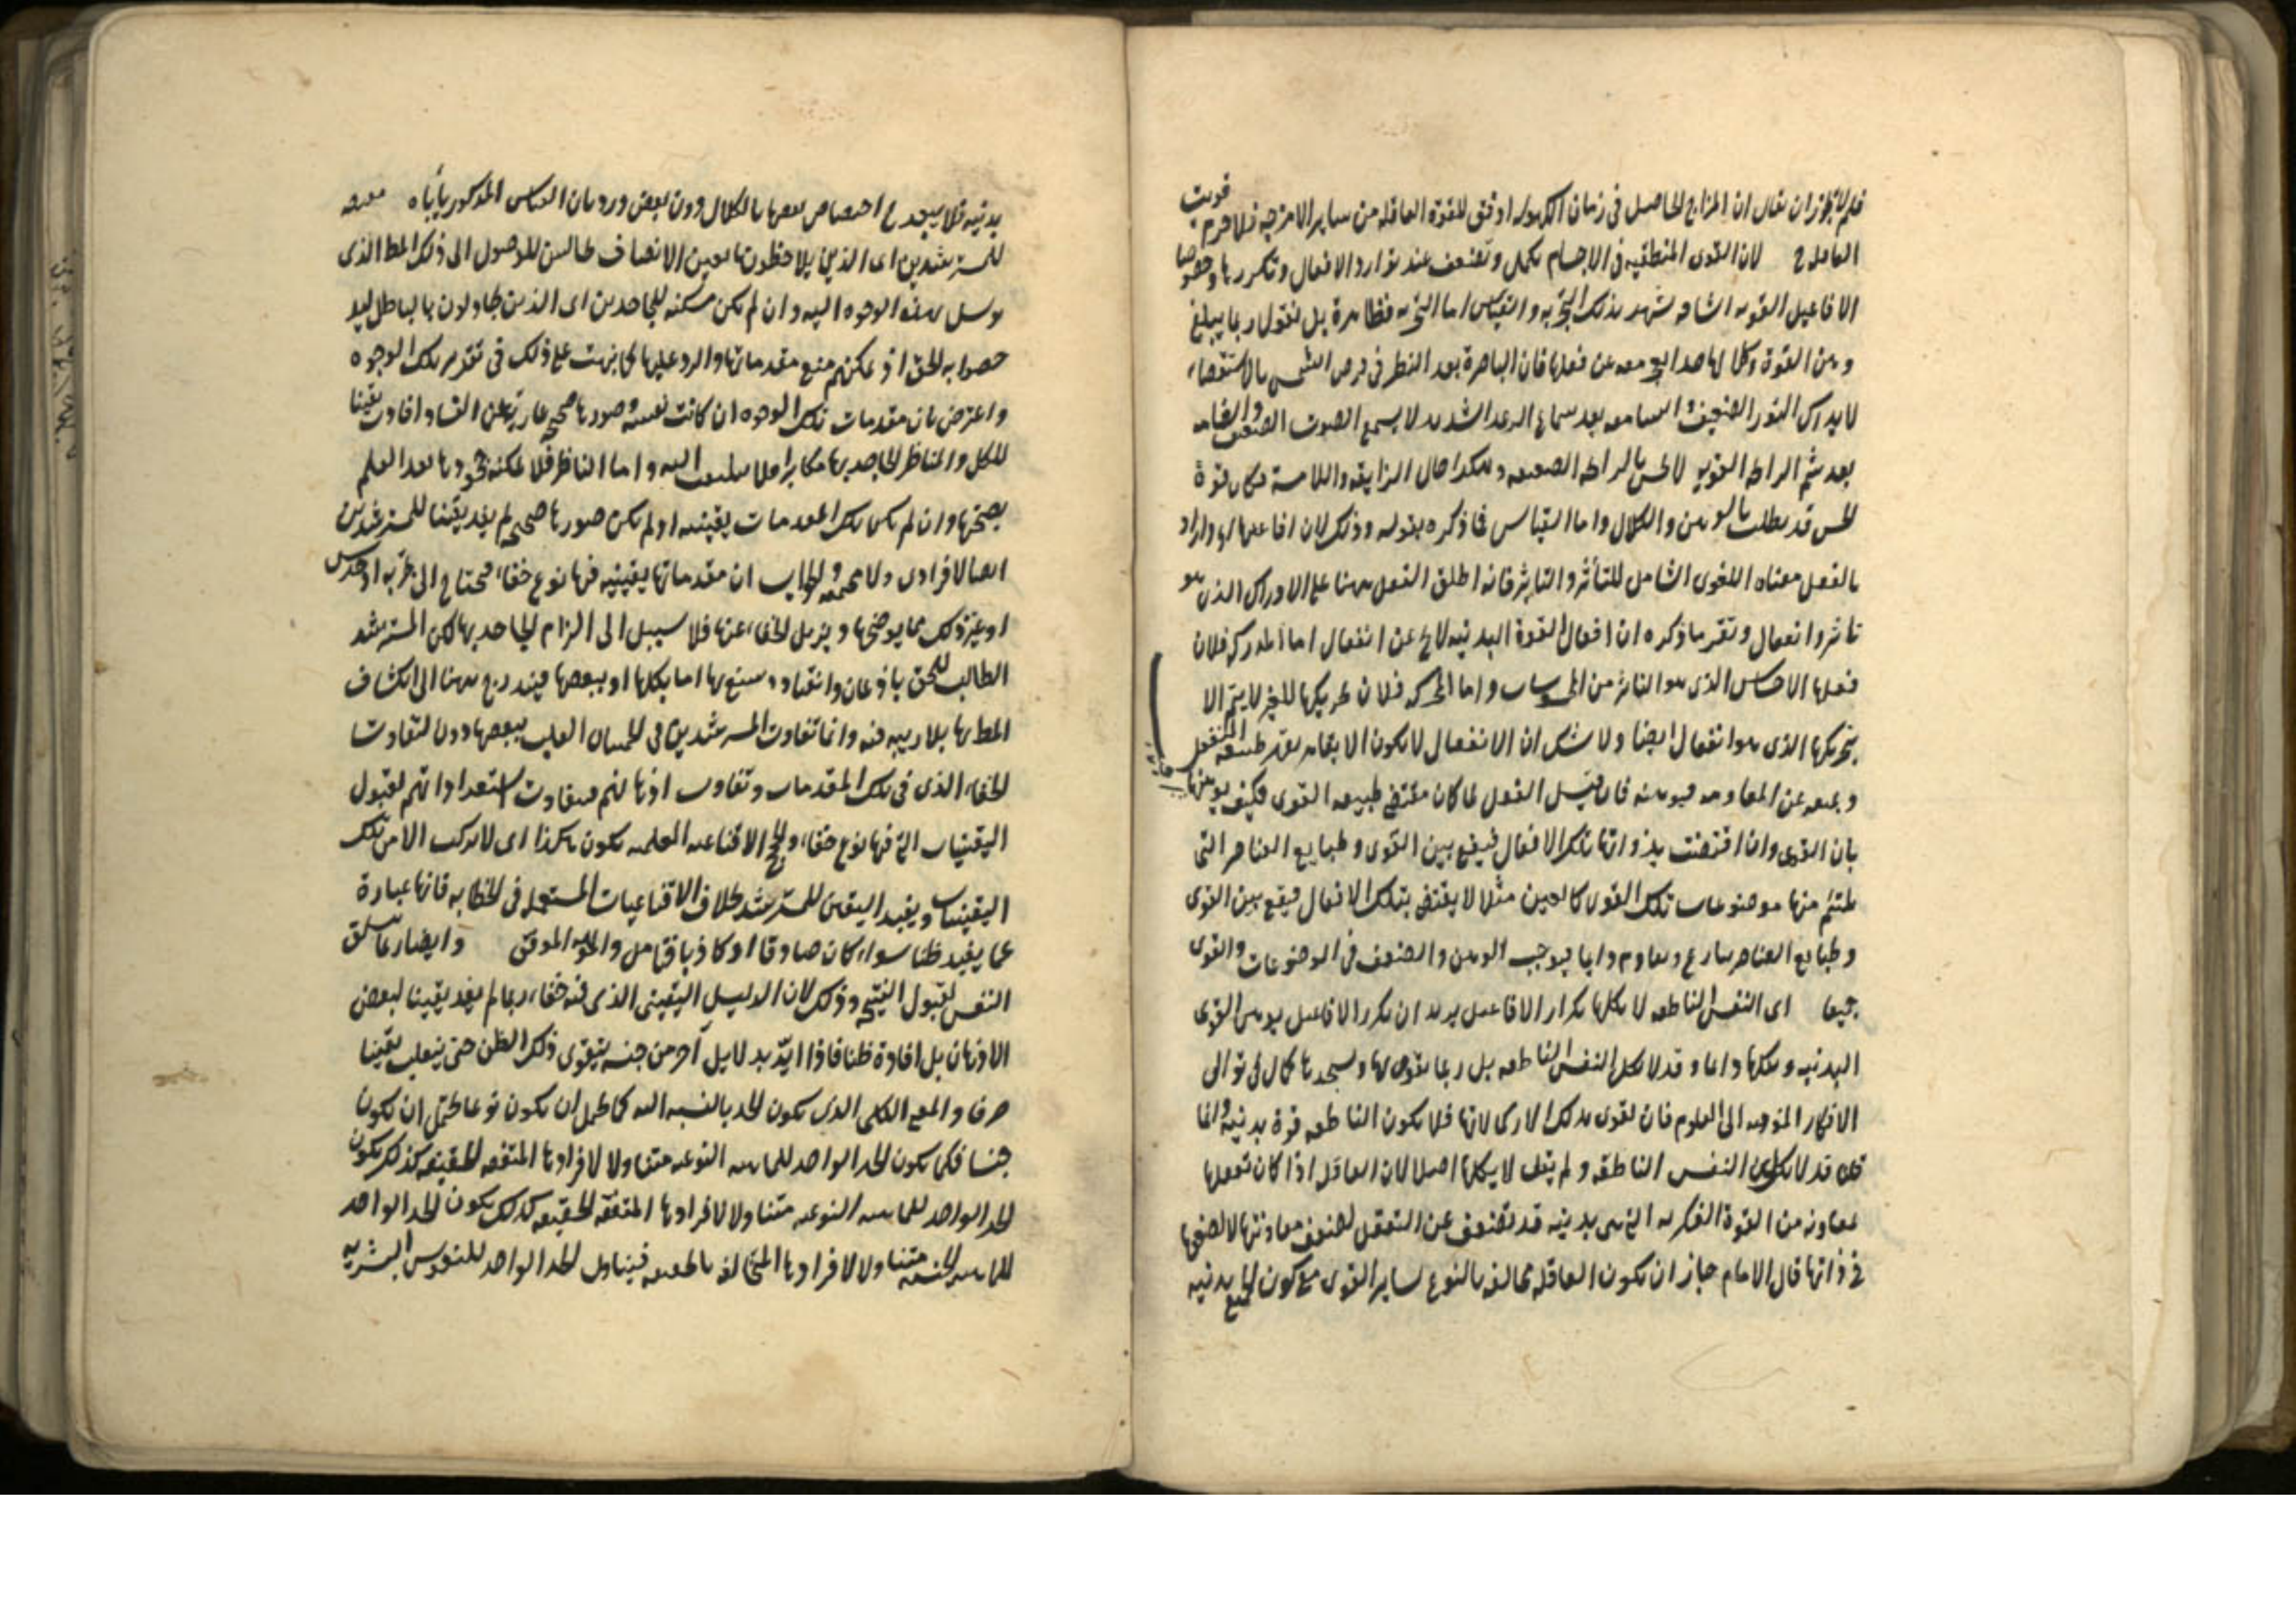 فلم لا يجوز ان يقال ان المزاج الحاصل فى زمان الكهولة اوفق للقوة العاقلة من ساير الامزجة فلا جرم قويت
العاقلة لان القوى المنطبقة فى الاجسام تكل وتضعف عند توارد الافعال وتكررها وخصوصا
الافاعيل القوية الشاقة تشهد بذلك التجربة والقياس اما التجربة فظاهرة بل نقول ربما يبلغ
وهن القوة وكلالها حدا يعجز معه عن فعلها فان الباصرة بعد النظر فى قرص الشمس بالاستقصاء
لا يدرك النور الضعيف والسامعة بعد سماع الرعد الشديد لا يسمع الصوت الضعيف والشامة
بعد شم الرائحة القوية لا تحس بالرائحة الضعيفة وهكذا حال الذايقة واللامسة فكان قوة
الحس قد بطلت بالوهن والكلال واما القياس فما ذكره بقوله وذلك لان افاعيلها واراد
بالفعل معناه اللغوى الشامل للتأثر والتاثير فانه اطلق الفعل ههنا على الادراك الذى هو
تاثر وانفعال وتقرير ما ذكره ان افعال القوة البدنية لا يخ عن انفعال اما المدركة فلان
فعلها الاحساس الذى هو التاثر من المحسوسات واما المحركة فلان تحريكها للغير لا يتم الا
بتحركها الذى هو انفعال ايضا ولا شك ان الانفعال لا يكون الا بقاهر يقهر طبيعة المنفعل
ويمنعه عن المقاومة فيوهنه فان قيل الفعل لما كان مقتضى طبيعة القوى فكيف يوهنها
بان القوى وان اقتضت بذواتها تلك الافعال فيقع بين القوى وطبايع العناصر التى
يلتئم منها موضوعات تلك القوى كالعين مثلا لا يقتضى بتلك الافعال فيقع بين القوى
وطبايع العناصر تنازع وتقاوم دايما فيوجب الوهن والضعف فى الموضوعات والقوى
جميعا اى النفس الناطقة لا يكلها تكرار الافاعيل يريد ان تكرر الافاعيل يوهن القوى
البدنية ويكلها دايما وقد لا يكل النفس الناطقة بل ربما يقويها ويشحذها كما فى توالى
الافكار المتوجهة الى العلوم فان تقوى بذلك لا يكلها فلا يكون الناطقة قوة بدنية وانما
قال قد لا يكل النفس الناطقة ولم يقل لا يكلها اصلا لان العاقلة اذا كان تعقلها
بمعاونة من القوة الفكرية التى هى بدنية قد تضعف عن التعقل لضعف معاونتها لا لضعفها
فى ذاتها قال الامام جاز ان تكون العاقلة مخالفة بالنوع لساير القوى مع كون الجميع بدنية
بدنية فلا يبعد ح اختصاص بعضها بالكلال دون بعض ورد بان القياس المذكور يأباه مقنعة
للمسترشدين اى الذين يلاحظونها بعين الانصاف طالبين للوصول الى ذلك المط الذى
توسل بهذه الوجوه اليه وان لم يكن مسكتة للجاحدين اى الذين يجادلون بالباطل ليد
حضوا به الحق اذ يمكنهم منع مقدماتها والرد عليها كما نبهت على ذلك فى تقرير تلك الوجوه
واعترض بان مقدمات تلك الوجوه ان كانت يقينية وصورها صحيحة عارية عن الفساد افادت يقينا
للكل والمناظر الجاحد بها مكابرا فلا يلتفت اليه واما الناظر فلا يمكنه جحودها بعد العلم
بصحتها وان لم يكن تلك المقدمات يقينية او لم يكن صورها صحيحة لم يفد يقينا للمسترشدين
ايضا لا فرادى ولا مجتمعة والجواب ان مقدماتها يقينية فيها نوع خفاء محتاج الى تجربة او حدس
او غير ذلك مما يوضحها ويزيل الخفاء عنها فلا سبيل الى الزام الجاحد بها لكن المسترشد
الطالب للحق باذعان وانقياد وينتفع بها اما بكلها او ببعضها فيندرج ههنا الى انكشاف
المط بها بلا ريبة فيه وانما تفاوت المسترشدين فى اطمينان القلب ببعضها دون لتفاوت
الخفاء الذى فى تلك المقدمات وتفاوت اذهانهم فى تفاوت استعداداتهم لقبول
اليقينيات التى فيها نوع خفاء والحجج الاقناعية العلمية يكون هكذا اى لا يركب الا من تلك
اليقينيات ويفيد اليقين للمسترشد بخلاف الاقناعيات المستعملة فى الخطابة فانها عبارة
عما يفيد ظنا سواء كان صادقا او كاذبا فتامل والله الموفق وايضا ربما يتعلق
النفس لقبول النتيجة وذلك لان الدليل اليقينى الذى فيه خفاء ربما لم يفد يقينا لبعض
الاذهان بل افاده ظنا فاذا ايّد بدلايل آخر من جنسه يتقوى ذلك الظن حتى ينقلب يقينا
صرفا والمعنى الكلى الذى يكون الحد بالنسبة اليه كما يحتمل ان يكون نوعا يحتمل ان يكون
جنسا فكما يكون الحد الواحد للماهية النوعية متناولا لافرادها المتفقة الحقيقة كذلك يكون
الحد الواحد للماهية النوعية متناولا لافرادها المتفقة الحقيقة كذلك يكون الحد الواحد
للماهية الجنسية متناولا لافرادها المتخالفة بالحقيقة فيتناول الحد الواحد للنفوس البشرية